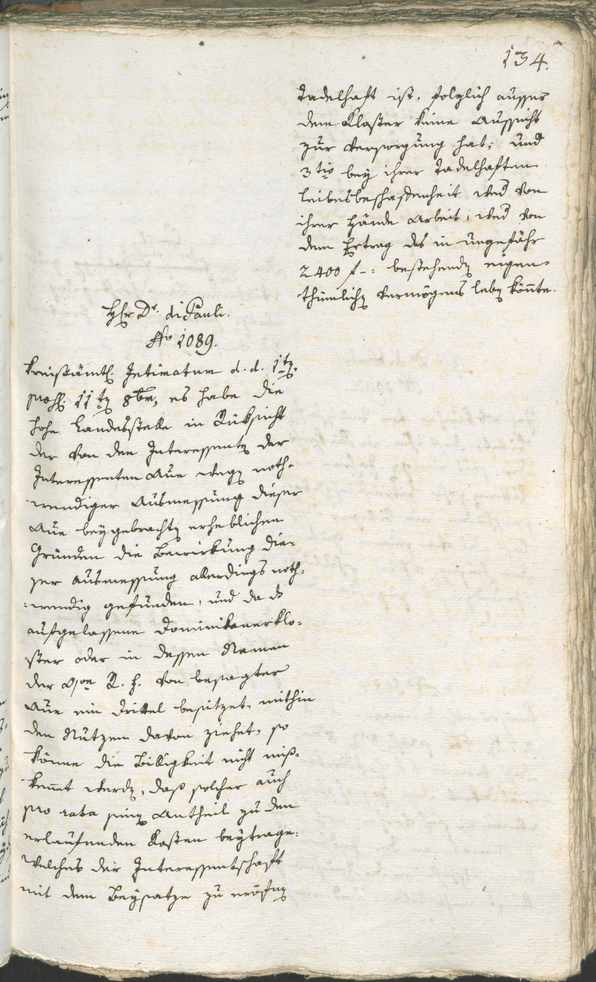 134.
tadelhaft ist, folglich ausser
dem Kloster keine Aussicht
zur Versorgung hat; und
3tio bey ihrer tadelhaften
Leibesbeschaffenheit wed von
ihrer Hände Arbeit, wed von
dem Ertrag des in ungefähr
2400 f -: bestehendn eigen-
thümlichn Vermögens lebn könnte.
Hr Dr. di Pauli.
No 1089.
Kreisämtl. Intimatum d. d. 1tn
11tn 8br, es habe die
hohe Landesstelle in Rüksicht
der von den Interessentn der
Interessenten Aue wegn noth-
wendiger Ausmessung dieser
Aue beygebrachtn erheblichen
Gründen die Bewirkung die-
ser Ausmessung allerdings noth-
wendig gefunden, und da d
aufgelassene Dominikanerklo-
ster oder in dessen Namen
der R. f. von besagter
Aue ein Drittel besitzet, mithin
den Nutzen davon ziehet, so
könne die Billigkeit nicht miß-
kennt werdn, daß solcher auch
pro rata seines Antheil zu den
erlaufenden Kosten beytrage.
Welches der Interessentschaft
mit dem Beysatze zu eröfnen